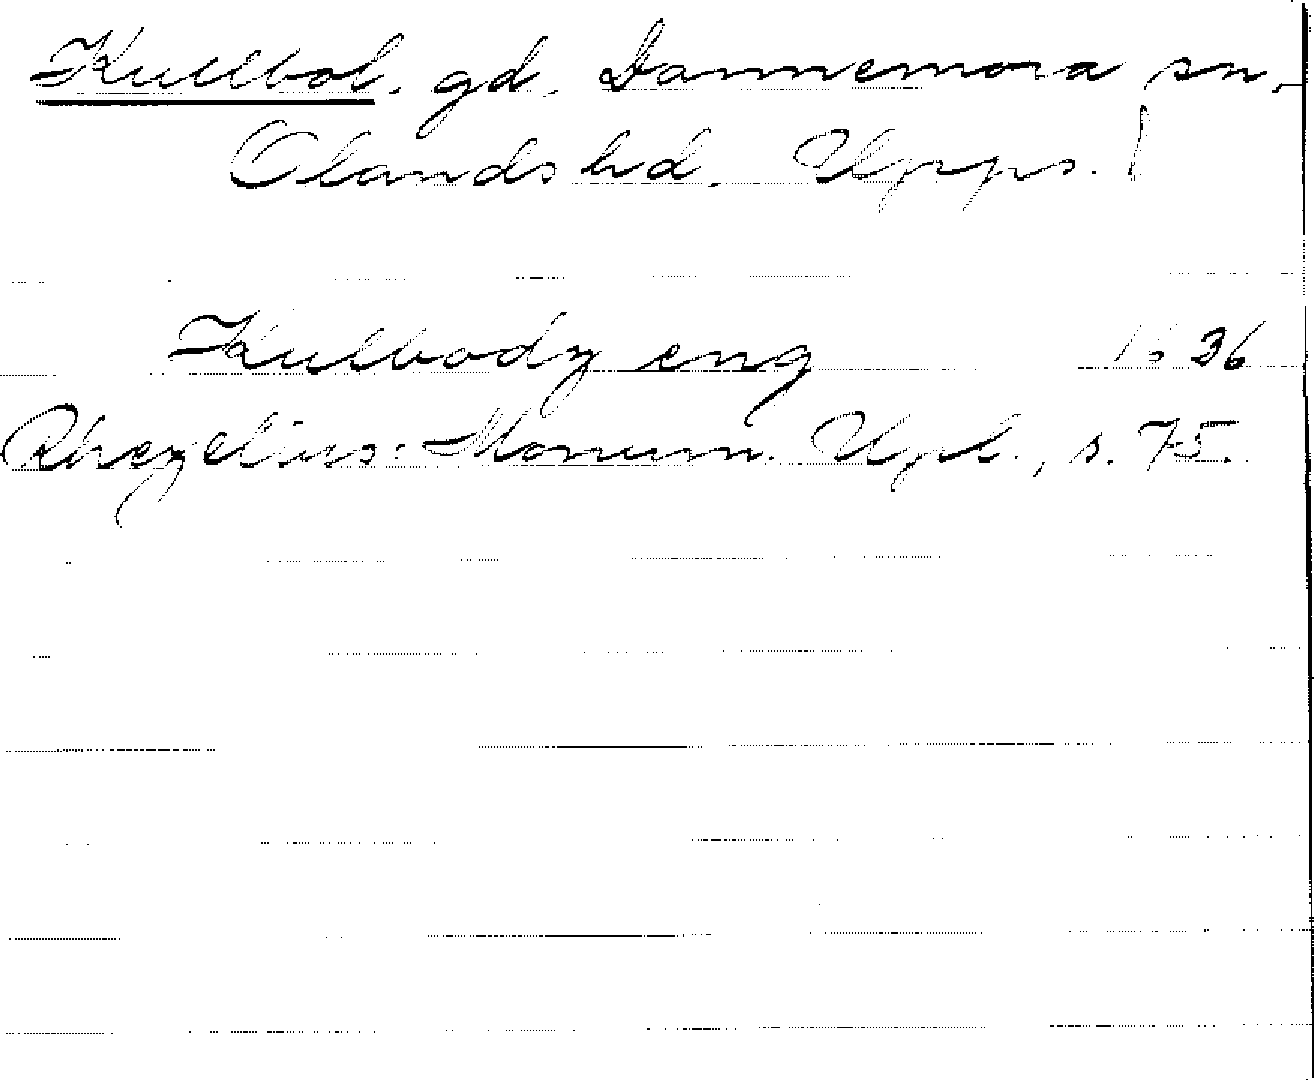 Kullbol. gd. Dannemora sn,
Olands hd. Upps. l
Kulbody eng 1636
Rhezelius: Monum. Upl., s. 75.